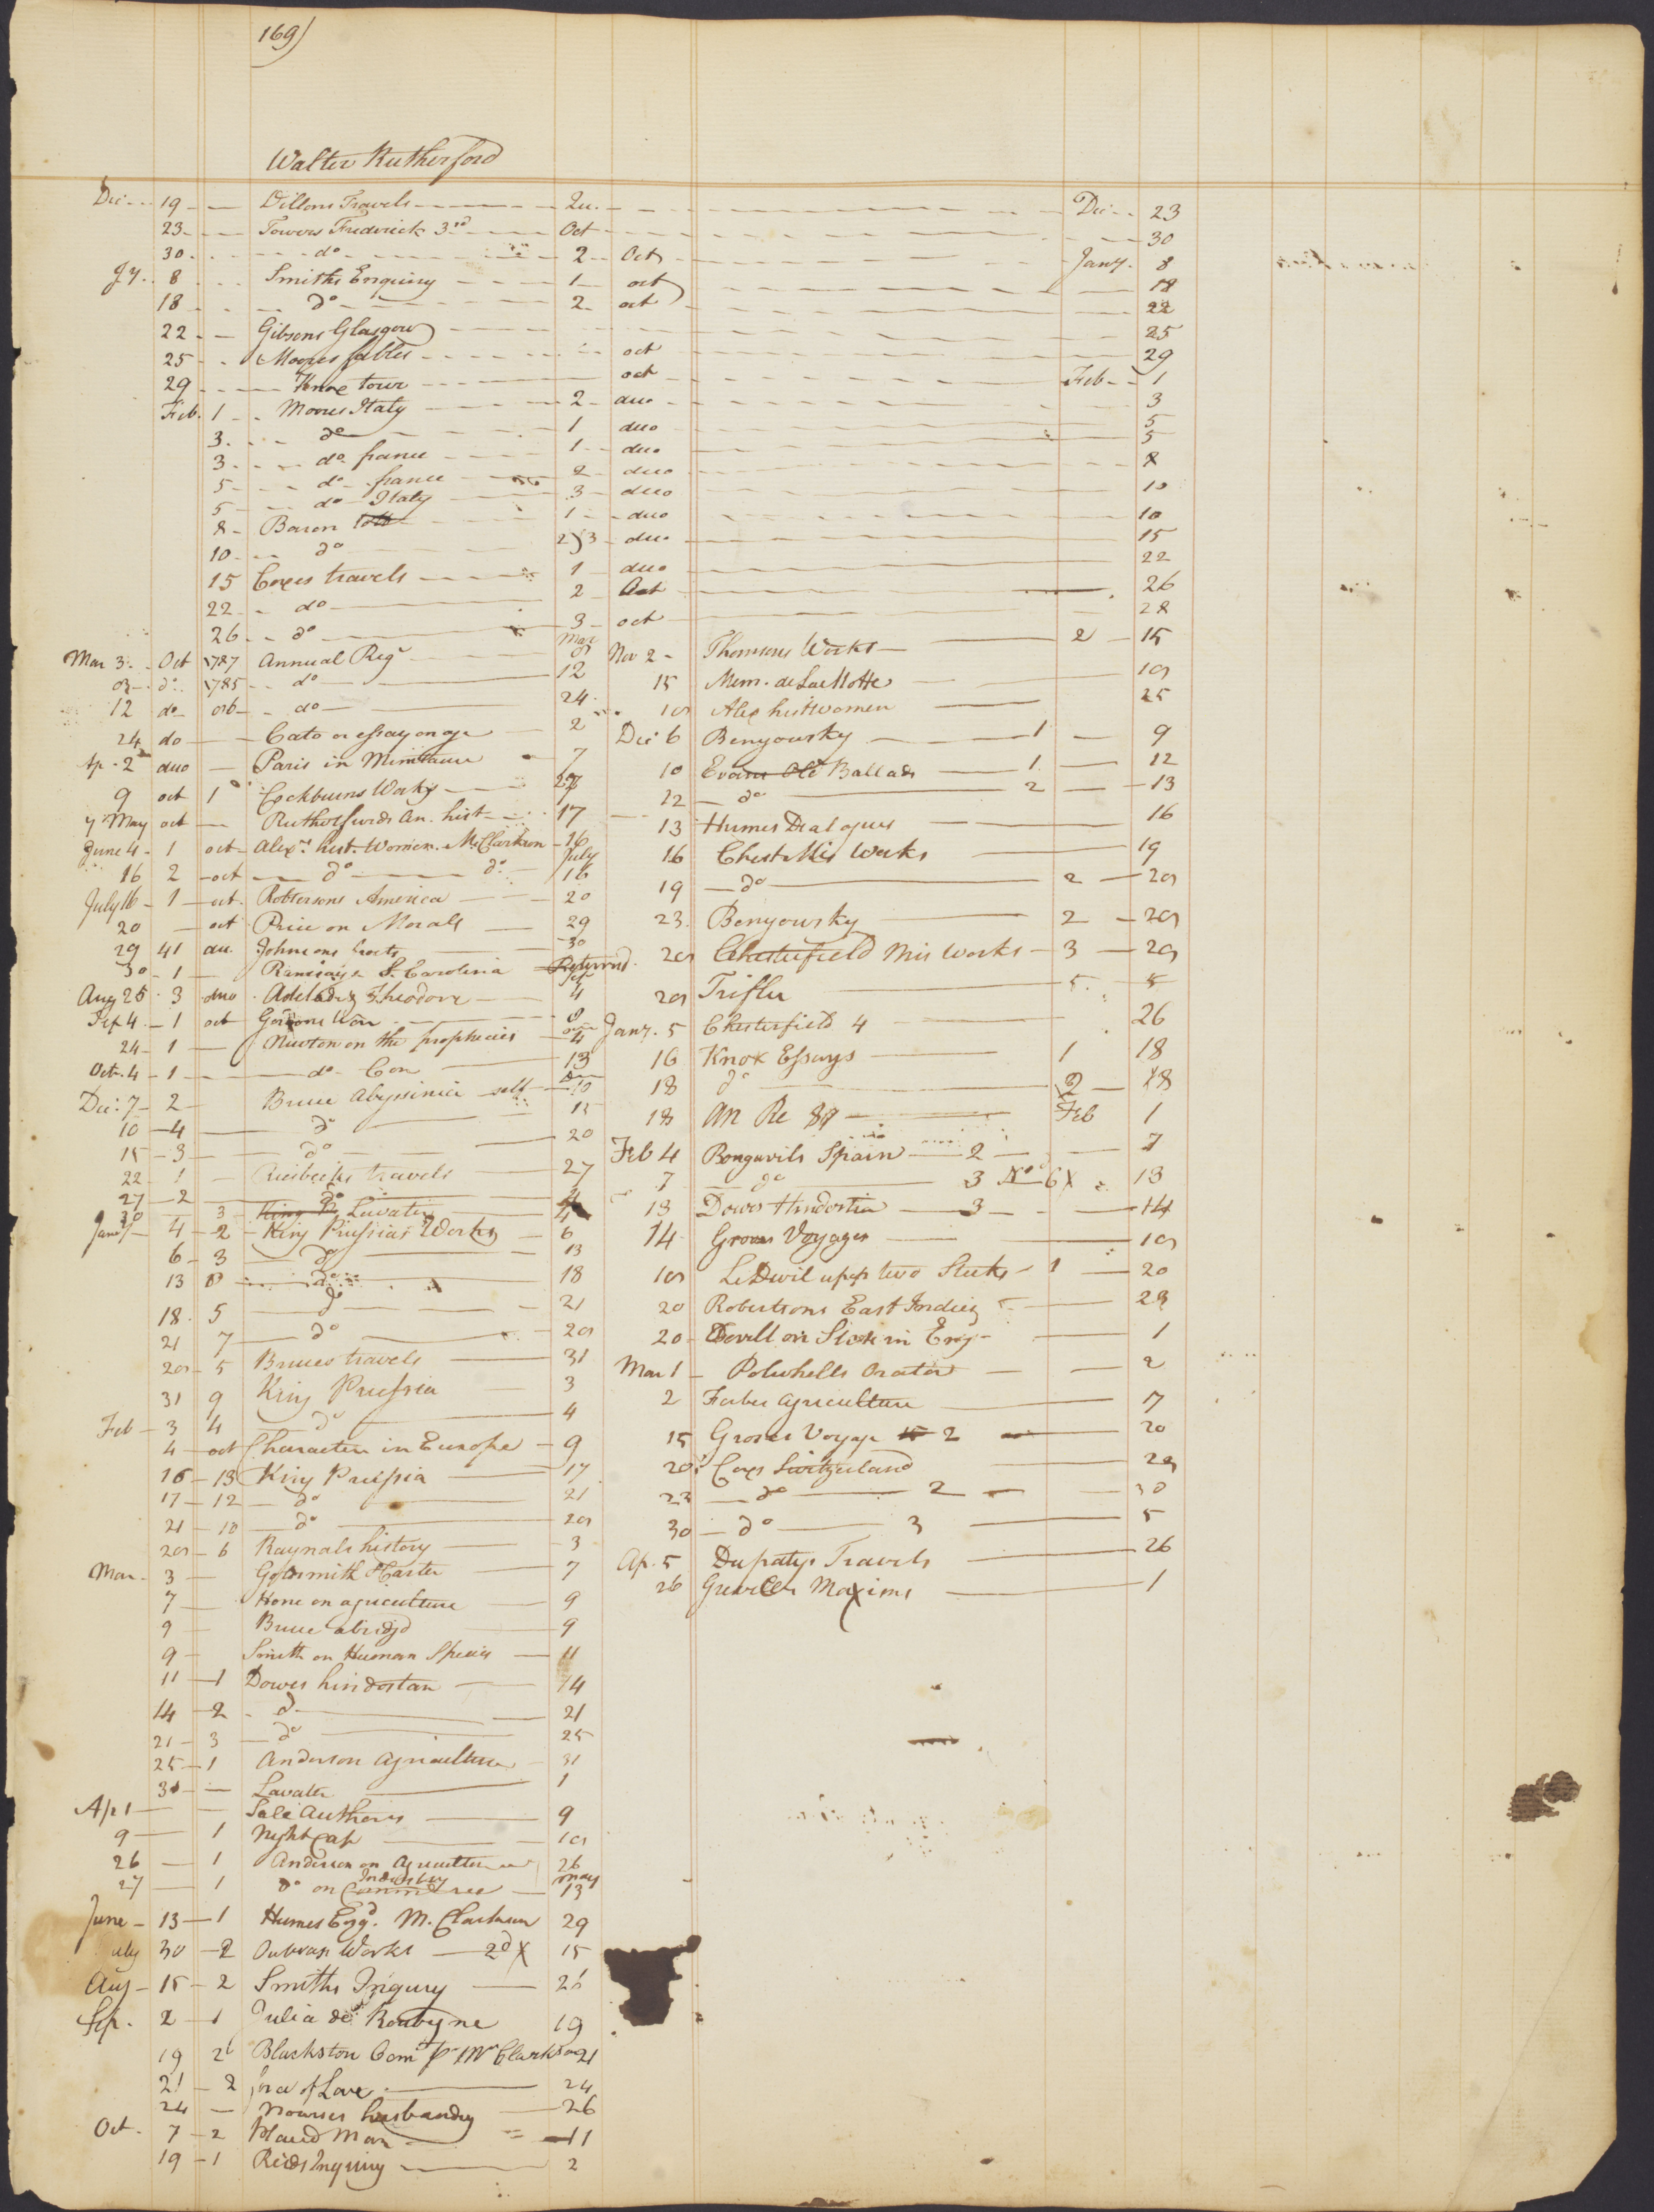 169)
Walter Rutherford
Dec 19 Dillons Travels Qu. Dec 23
23 Towers Frederick 3rd Oct 30
30 do 2 Oct Jany. 8
Jy. 8 Smiths Enquiry 1 oct 18
18 do 2 oct 22
22 Gibsons Glasgow 25
25 Moores fables oct 29
29 Knox tour oct Feb 1
Feb. 1 Moores Italy 2 duo 3
3 do 1 duo 5
3 do france 1 duo 5
5 do france 2 duo 8
5 do Italy 3 duo 10
8 Baron Tott 1 duo 10
10 do 2 & 3 duo 15
15 Coxes travels 1 duo 22
22 do 2 Oct 26
26 do 3 oct 28
Mar 3 Oct 1787 Annual Regr Mar
03 do 1785 do 12
12 do do 24
24 do Cato or essay on age 2
Ap. 2 duo Paris in Miniature 7
9 oct 1 Cockburns Works 27
7 May oct Rutherfords An. hist 17
June 4 1 oct Alexrs hist. Women. Mr Clarkson 16
16 2 oct do do July 16
July 16 1 oct. Robersons America 20
20 oct Price on Morals 29
29 41 du. Johnsons Poets 30
30 1 Ramsays S. Carolina Returned
Aug 25 3 duo Adela & Theodore Sep 4
Sep 4 1 oct Gordons War
24 1 Newton on the prophecies 4
Oct. 4 1 do Con 13
Dec: 7 2 Bruce Abyssinia self Dec 10
10 4 do 15
15 3 do 20
22 1 Riesbecks travels 27
27 2 do
30 3 King P. Lavater 4
Jany 4 2 King Prussias Works 6
6 3 do 13
13 8 do 18
18 5 do 21
21 7 do 29
29 5 Bruces travels 31
31 9 King Prussia 3
Feb 3 4 do 4
4 oct Characters in Europe 9
16 13 King Prussia 17
17 12 do 21
21 10 do 29
29 6 Raynals history 3
Mar. 3 Goldsmith Harter 7
7 Home on agriculture 9
9 Bruce abridgd 9
9 Smith on Human Species 11
11 1 Dowes hindostan 14
14 2 do 21
21 3 do 25
25 1 Anderson Agriculture 31
31 Lavater 1
Ap 1 Sele Authors 9
9 1 Night Cap 19
26 1 Anderson on Agriculture 26
27 1 do on Commerce Industry may 13
June 13 1 Humes Essy. M. Clarkson 29
July 30 2 Works 2d X 15
Aug 15 2 Smiths Inqury 26
Sep. 2 1 Julia de Roubyne 19
19 2 Blackston Com pr Mr Clarkson 21
21 2 force of Love 24
24 Nourses husbandry 26
Oct. 7 2 Placid Man 11
19 1 Reids Inquiry 2
Nov 2 Thomsons Works 2 15
15 Mem. de La Motte 19
19 Alex hist women 25
Dec 6 Benyowsky 1 9
10 Evans Old Ballads 1 12
12 do 2 13
13 Humes Dialogues 16
16 Chest. Mis Works 19
19 do 2 29
23 Benyowsky 2 29
29 Chesterfield Mis Works 3 29
29 Trifler 5
Jany. 5 Chesterfield 4 26
16 Knox Essays 1 18
18 do 2 28
18 An Re 89 Feb 1
Feb 4 Bourgavils Spain 2 7
7 do 3 No 6 X 13
13 Dowes Hindostan 3 14
14 Groses Voyages 19
19 Le Devil upon two Sticks 1 20
20 Robertsons East Indies 29
20 Devill on Stick in Eng 1
Mar 1 Polwhells Orator 2
2 Forbes agriculture 7
15 Groses Voyage 2 20
20 Coxes Switzerland 29
23 do 2 30
30 do 3 5
Ap. 5 Dupatys Travels 26
26 Grevilles Maxims 1